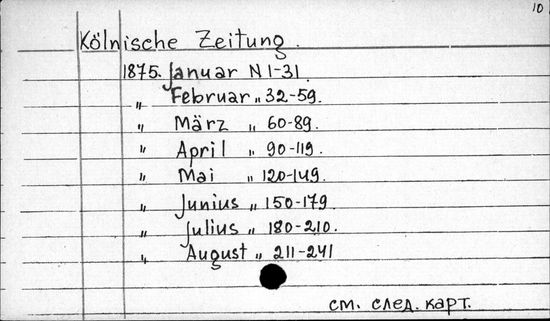 10
Kölnische Zeitung.
1875. Januar N 1-31.
„ Februar „ 32-59.
„ März „ 60-89.
„ April „ 90-119.
„ Mai „ 120-149.
„ Junius „ 150-179.
„ Julius „ 180-210.
„ August „ 211-241
см. след. карт.